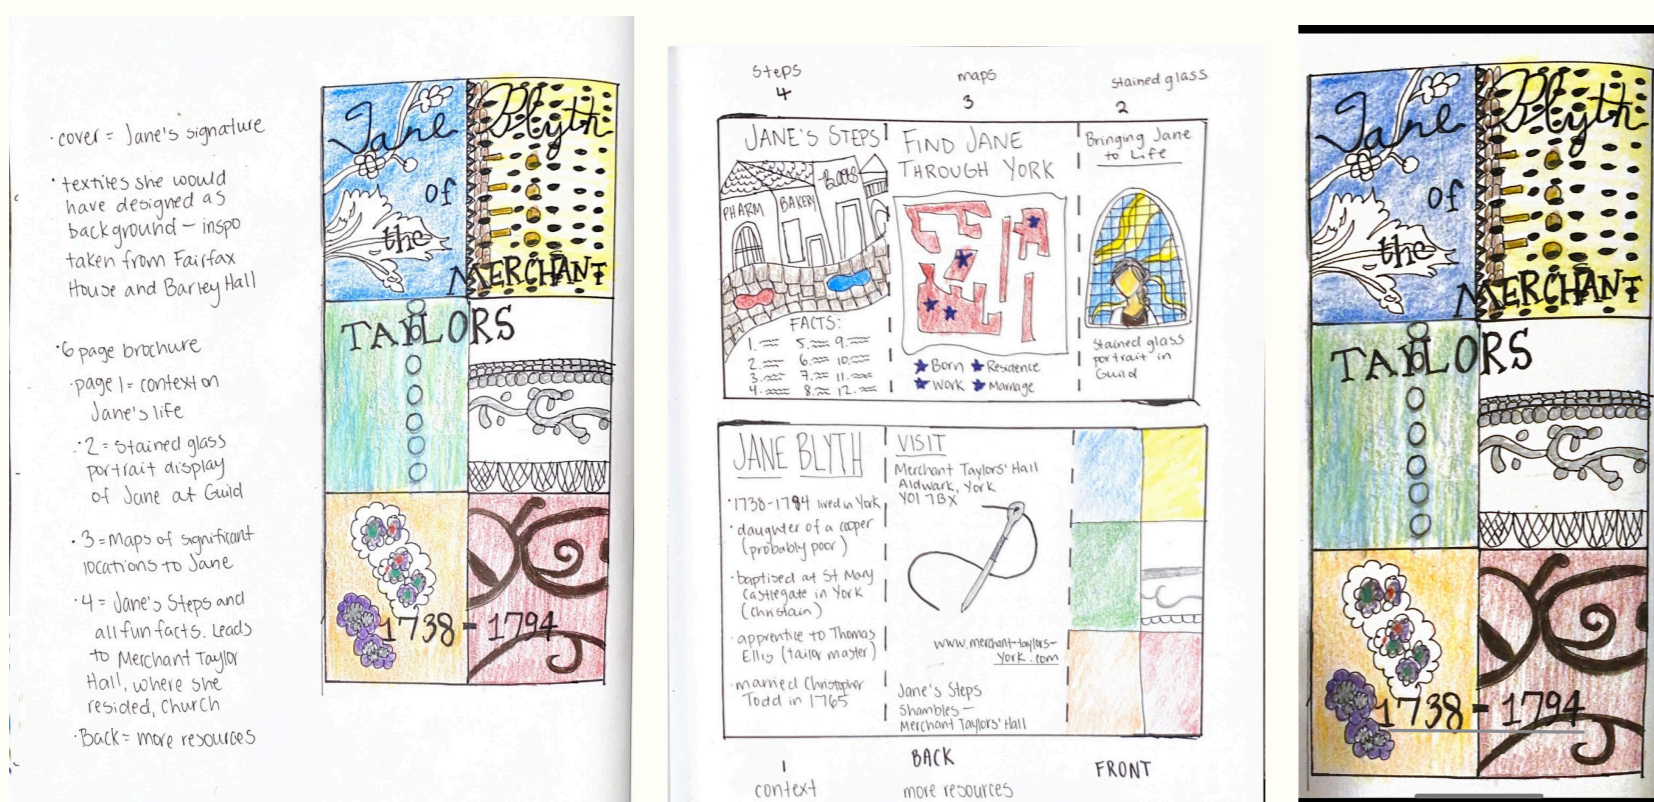 · cover = Jane's signature
· textiles she would
have designed as
background – inspo
taken from Fairfax
House and Barley Hall
· 6 page brochure
· page 1 = context on
Jane's life
· 2 = stained glass
portrait display
of Jane at Guild
· 3 = Maps of significant
locations to Jane
· 4 = Jane's Steps and
all fun facts. Leads
to Merchant Taylor
Hall, where she
resided, church
· Back = more resources
Jane Blyth
of
the
MERCHANT
TAYLORS
1738 - 1794
steps
4
maps
3
stained glass
2
JANE'S STEPS
PHARM
BAKERY
Boots
FACTS:
1. 5. 9.
2. 6. 10.
3. 7. 11.
4. 8. 12.
FIND JANE
THROUGH YORK
Born Residence
Work Marriage
Bringing Jane
to Life
Stained glass
portrait in
Guild
JANE BLYTH
· 1738-1794 lived in York
· daughter of a cooper
(probably poor)
· baptised at St Mary
Castlegate in York
(christain)
· apprentice to Thomas
Ellis (tailor master)
· married Christopher
Todd in 1765
VISIT
Merchant Taylors' Hall
Aldwark, York
YO1 7BX
www.merchant-taylors-
york.com
Jane's Steps
Shambles –
Merchant Taylors' Hall
1
context
BACK
more resources
FRONT
Jane Blyth
of
the
MERCHANT
TAYLORS
1738 - 1794